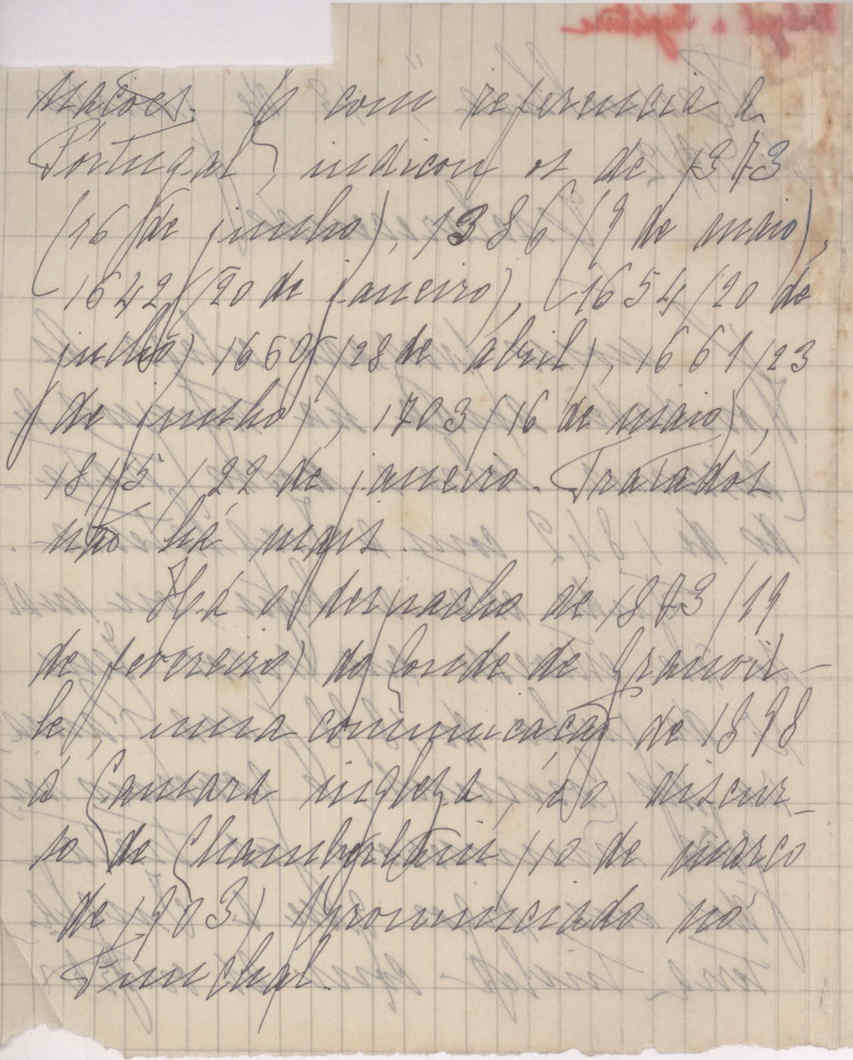 nações. E com referencia a
Portugal, indicou os de 1373
(16 de junho), 1386 (9 de maio),
1642 (20 de janeiro), 1654 (20 de
julho) 1660 (28 de abril), 1661 (23
de junho), 1703 (16 de maio),
1815 (22 de janeiro. Tratados
não há mais.
Há o despacho de 1873 (19
de fevereiro) do Conde de Granvil-
le, uma communicação de 1898
á Camara ingleza, e o discur-
so de Chamberlain (10 de março
de 1903) pronunciado no
Funchal.